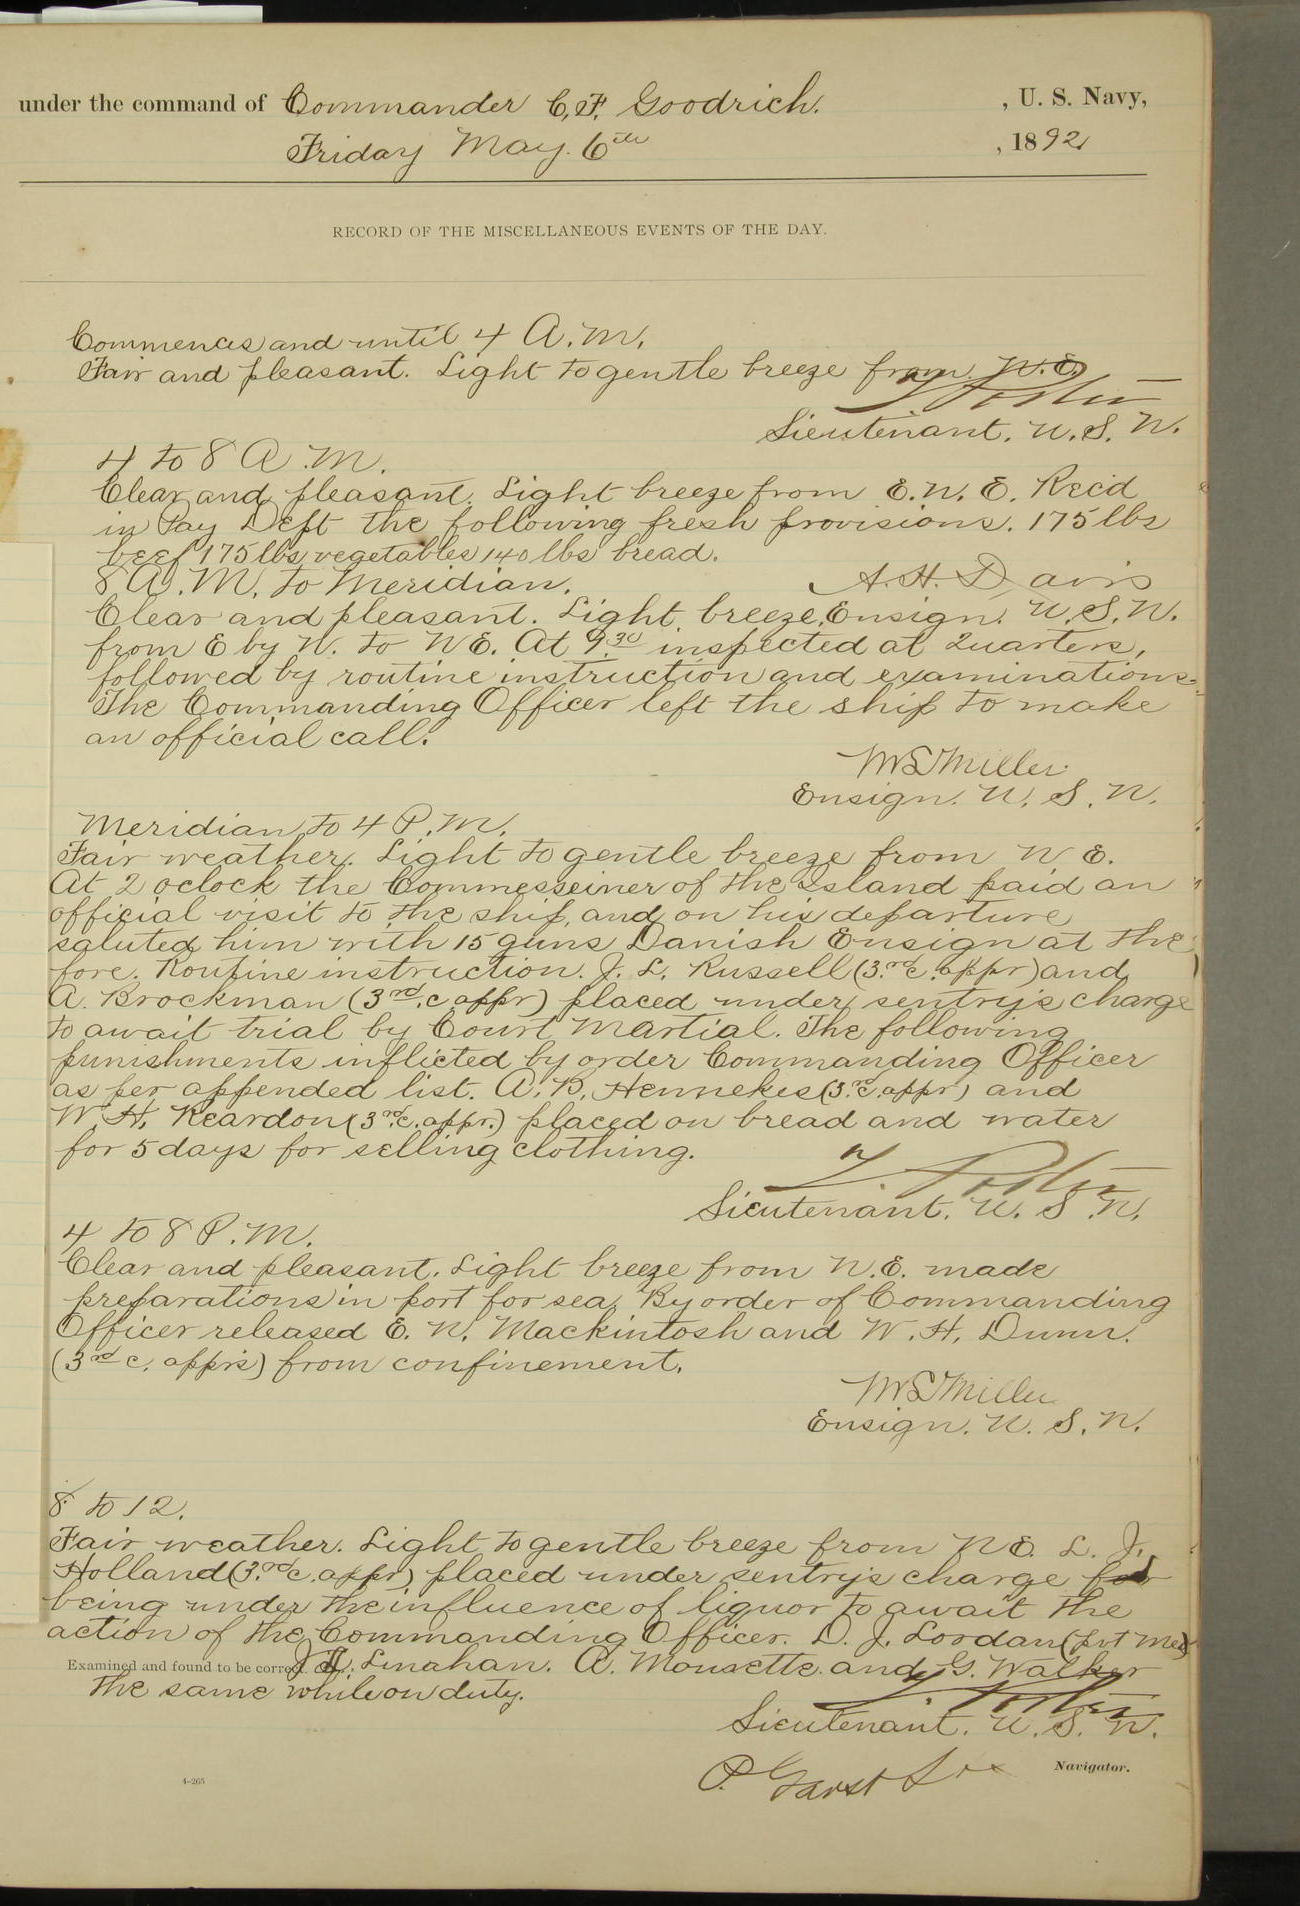 under the command of Commander C. F. Goodrich. , U. S. Navy,
Friday May. 6th , 1892
RECORD OF THE MISCELLANEOUS EVENTS OF THE DAY.
Commences and until 4 A.M.
Fair and pleasant. Light to gentle breeze from N.E.
Lieutenant. U.S.N.
4 to 8 A.M.
Clear and pleasant. Light breeze from E.N.E. Rec'd
in Pay Dept the following fresh provisions. 175 lbs
beef 175 lbs vegetables 140 lbs bread.
A. H. Davis
Ensign. U.S.N.
8 A.M. to Meridian.
Clear and pleasant. Light breeze
from E by N. to NE. At 9.30 inspected at Quarters,
followed by routine instruction and examinations-
The Commanding Officer left the ship to make
an official call.
W S Miller
Ensign. U.S.N.
Meridian to 4 P.M.
Fair weather. Light to gentle breeze from N E.
At 2 oclock the Commesseiner of the Island paid an
official visit to the ship, and on his departure
saluted him with 15 guns Danish Ensign at the
fore. Routine instruction. J. L. Russell (3rd c. appr) and
A. Brockman (3rd. c appr) placed under sentry's charge
to await trial by Court Martial. The following
punishments inflicted by order Commanding Officer
as per appended list. A. B. Hennekes (3rd c. appr) and
W. H. Reardon (3rd c. appr.) placed on bread and water
for 5 days for selling clothing.
Lieutenant. U. S. N.
4 to 8 P.M.
Clear and pleasant. Light breeze from N.E. made
preparations in port for sea. By order of Commanding
Officer released E. N. Mackintosh and W. H. Dunn.
(3rd c. appr's) from confinement.
W S Miller
Ensign. U. S. N.
8 to 12.
Fair weather. Light to gentle breeze from N E. L. J.
Holland (3rd c. appr) placed under sentry's charge for
being under the influence of liquor to await the
action of the Commanding Officer. D. J. Lordan
Examined and found to be correct. Linahan. A. Mousette and G. Walker
the same while on duty.
Lieutenant. U. S. N.
P. Garst Navigator.
4-265